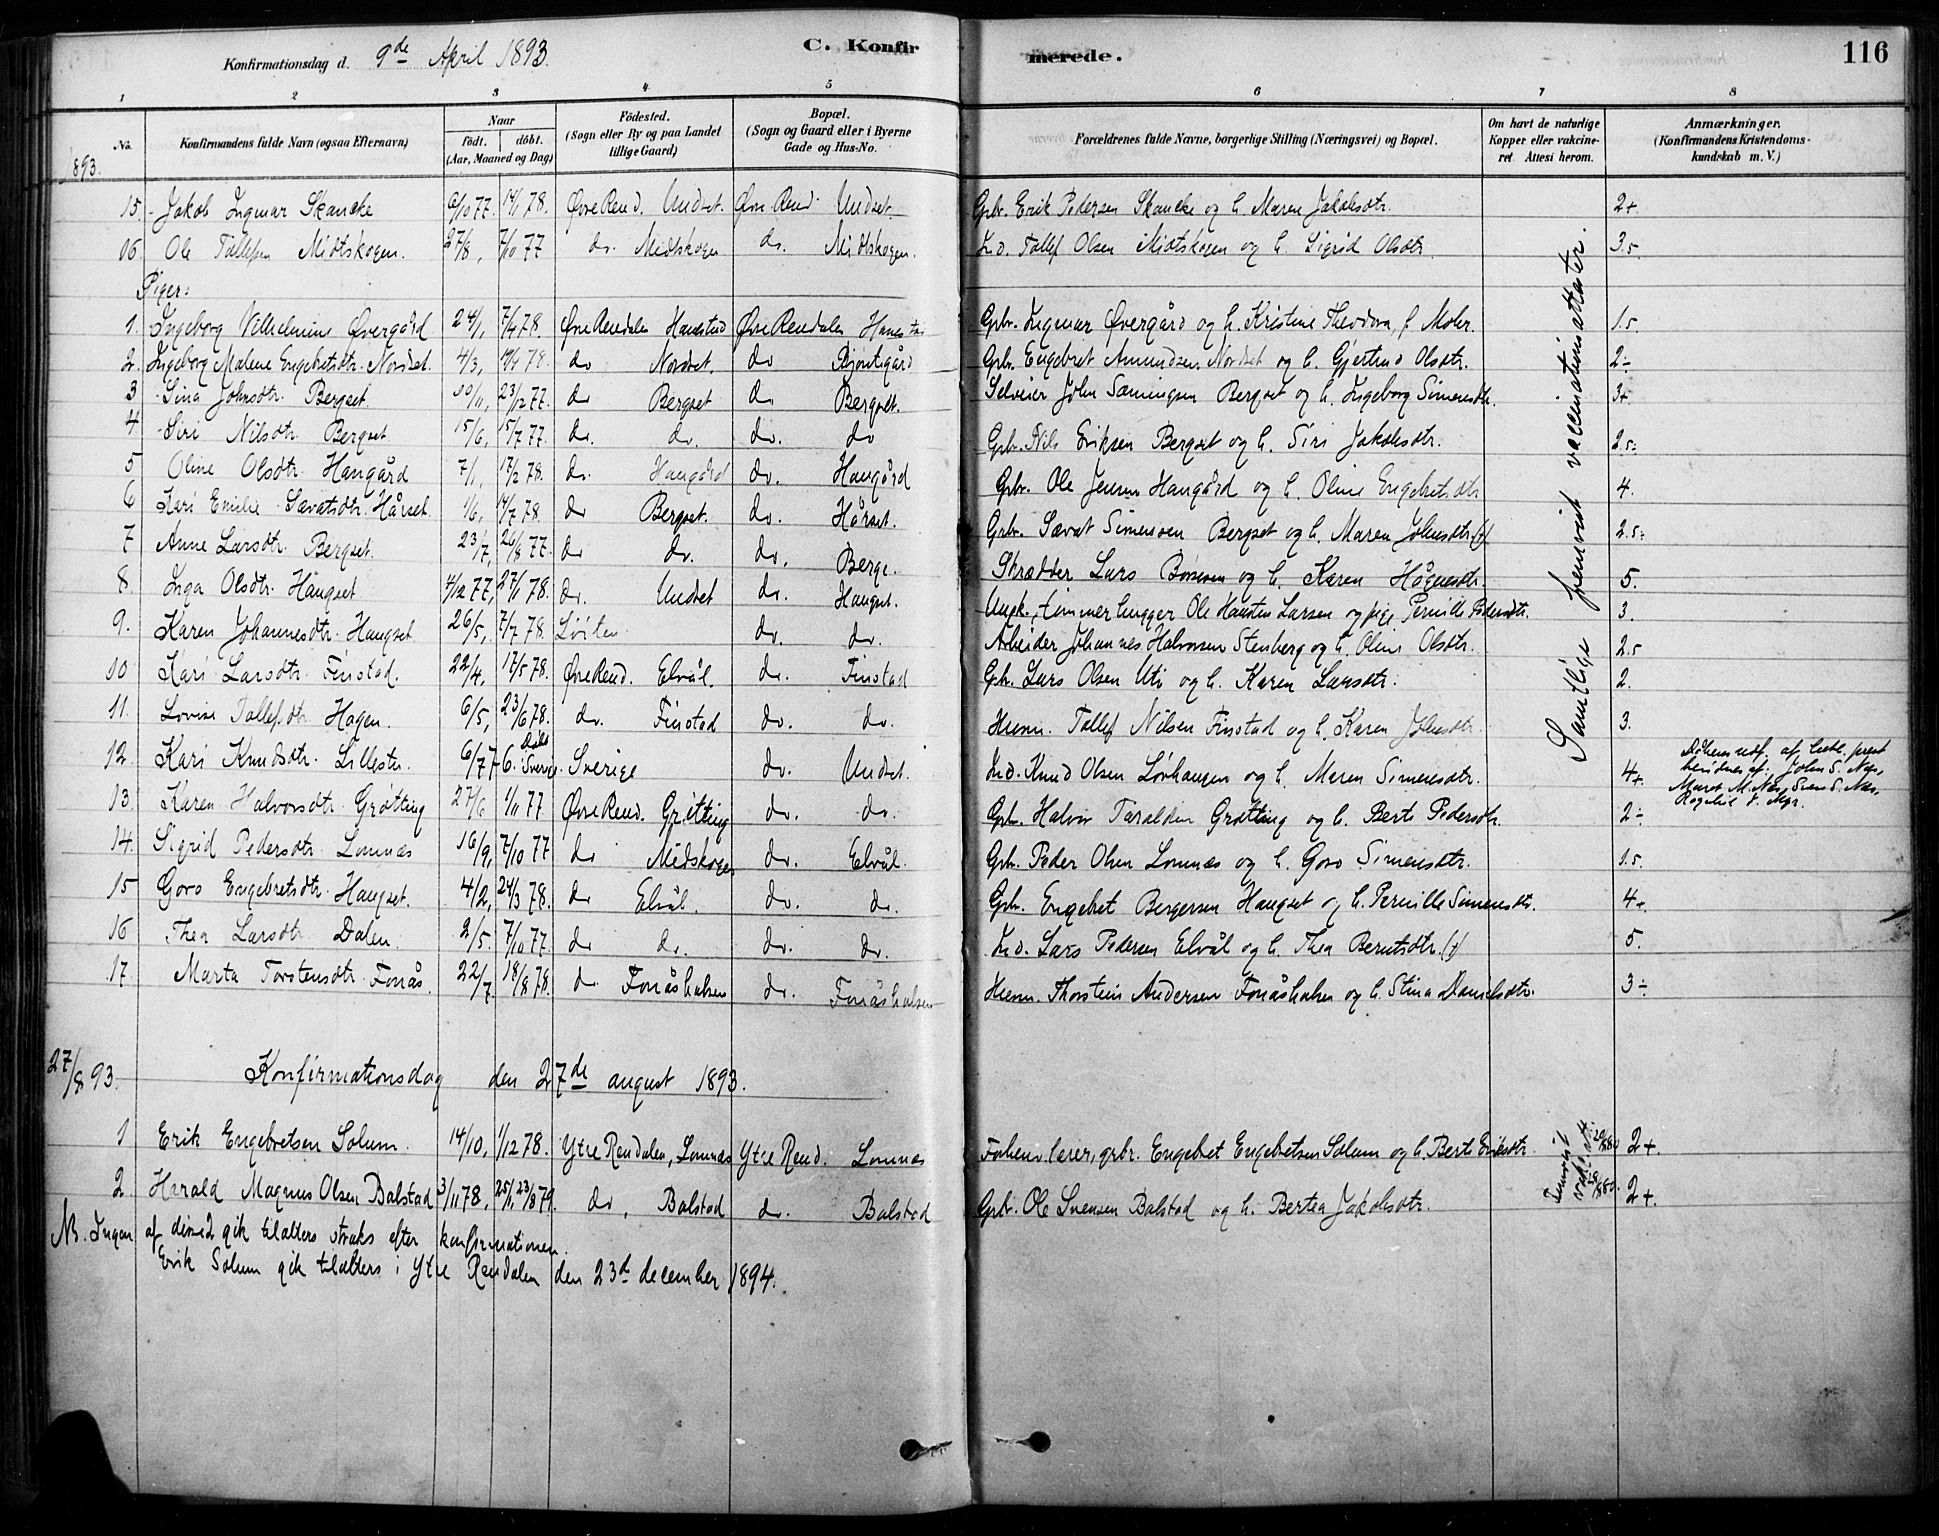 Konfirmationsdag d. 9de April 1893.
C. Konfirmerede.
116
1 2 3 4 5 6 7 8
No.
Konfirmandens fulde Navn (ogsaa Efternavn)
Naar
födt. döbt.
(Aar, Maaned og Dag)
Födested.
(Sogn eller By og paa Landet
tillige Gaard)
Bopæl.
(Sogn og Gaard eller i Byerne
Gade og Hus-No.
Forældrenes fulde Navne, borgerlige Stilling (Næringsvei) og Bopæl.
Om havt de naturlige
Kopper eller vakcine-
ret. Attest herom.
Anmærkninger.
(Konfirmandens Kristendoms-
kundskab m. V.)
1893.
15. Jakob Ingmar Skancke 6/10 77. 14/1 78. Øvre Rend. Undset. Øvre Rend. Undset. Gbr. Erik Pedersen Skancke og h. Maren Jakobsdtr. 2+.
16. Ole Tollefsen Midtskogen. 27/8, 7/10 77 do. Midtskogen do. Midtskogen. Ind. Tollef Olsen Midtskogen og h. Sigrid Olsdtr. 3.5
Piger:
1. Ingeborg Vilhelmine Øvergård 24/1, 7/4 78. Øvre Rendalen Hanestad Øvre Rendalen Hanestad Gbr. Ingmar Øvergård og h. Kristine Theodora f. Mohr. 1.5
2. Ingeborg Malene Engebretsdtr. Nordset. 4/3, 14/4 78. do Nordset. do Gbr. Engebret Amundsen Nordset og h. Gjertrud Olsdtr. 2÷
3 Sina Johnsdtr. Bergset. 10/11, 23/12 77. do Bergset do Bergset. Selveier John Sæmingsen Bergset og h. Ingeborg Simensdtr. 3+
4 Siri Nilsdtr. Bergset 15/6, 15/7 77. do. do. do. do Gbr. Nils Eriksen Bergset og h. Siri Jakobsdtr. 2.5÷
5 Oline Olsdtr. Haugård 7/1, 17/2 78. do. Haugård do. Haugård Gbr. Ole Jensen Haugård og h. Oline Engebretsdtr 4.
6 Kari Emilie Savatsdtr. Hårset. 1/6, 14/7 78. do Bergset. do. Hårset. Gbr. Savat Simensen Bergset og h. Maren Johnsdtr. (†) 2.5÷
7 Anne Larsdtr. Bergset. 23/7, 26/8 77. do do. do. Berge. Skrædder Lars Børresen og h. Karen Høgnesdtr. 5.
8. Inga Olsdtr. Haugset 4/12 77, 27/1 78. do. Undset do. Haugset. Ungk., tømmerhugger Ole Hansten Larsen og pige Pernille Pedersdtr. 3.
9. Karen Johannesdtr. Haugset 26/5, 7/7 78. Löiten do. do. Arbeider Johannes Halvorsen Stenberg og h. Oline Olsdtr. 2.5
10 Kari Larsdtr. Finstad. 22/4, 17/5 78. Øvre Rend. Elvål. do. Finstad Gbr. Lars Olsen Uti og h. Karen Larsdtr. 2.
11. Lovise Tollefsdtr. Hagen. 6/5, 23/6 78. do. Finstad do. do. Husm. Tollef Nilsen Finstad og h. Karen Johnsdtr 3.
12. Kari Knudsdtr. Lillestu. 6/7 76. Døbt i Sverige. Sverige do. Undset. Ind. Knud Olsen Lövhaugen og h. Maren Simensdtr. 4+.
13. Karen Halvorsdtr. Grötting 27/6 1/11 77 Øvre Rend. Grötting do. do. Gbr. Halvor Taraldsen Grøtting og h. Berte Pedersdtr. 2÷
14. Sigrid Pedersdtr. Lomnæs 16/9, 7/10 77 do Midtskogen do. Elvål. Gbr. Peder Olsen Lomnæs og h. Goro Simensdtr. 1.5
15 Goro Engebretsdtr. Haugset. 4/2, 24/3 78. do Elvål. do. do. Gbr. Engebret Bergersen Haugset og h. Pernille Simensdtr. 4+.
16 Thea Larsdtr. Dalen. 2/5. 7/10 77. do do. do. do. Ind. Lars Pedersen Elvål og h. Thea Berntsdtr. (†) 5.
17. Marta Torstensdtr. Fonås. 22/7. 18/8 78. do Fonåshalsen do. Fonåshalsen Husm. Thorstein Andersen Fonåshalsen og h. Stina Danielsdtr. 3÷
Samtlige fremvist vaccinationsattester.
27/8 93. Konfirmationsdag den 27de august 1893.
1 Erik Engebretsen Solum. 14/10, 1/12 78. Ytre Rendalen, Lomnæs Ytre Rend. Lomnæs Forhenv. lærer, grbr. Engebret Engebretsen Solum og h. Berte Eriksdtr. 2+.
2. Harald Magnus Olsen Balstad 3/11 78, 25/1, 23/3 79. do, Balstad do. Balstad Gbr. Ole Svensen Balstad og h. Bertea Jakobsdtr. 2+.
NB. Ingen af disse 2 gik tilalters straks efter konfirmationen.
Erik Solum gik tilalters i Ytre Rendalen den 23de december 1894.